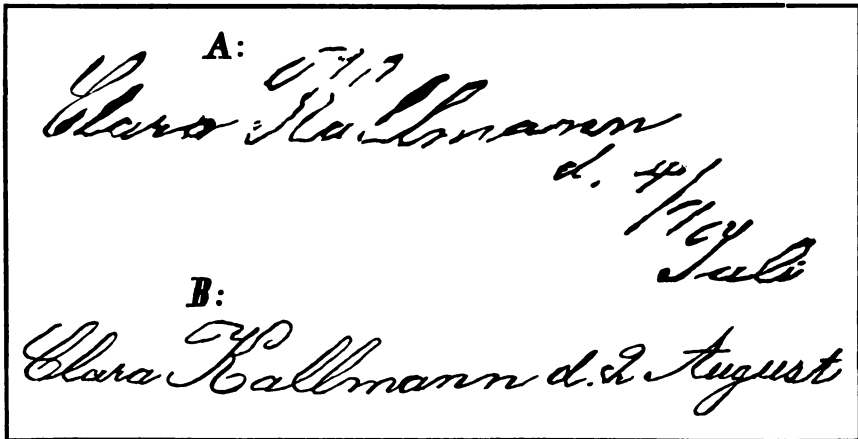 A:
Clara Kallmann
d. 4/7 04
Juli
B:
Clara Kallmann d. 2 August